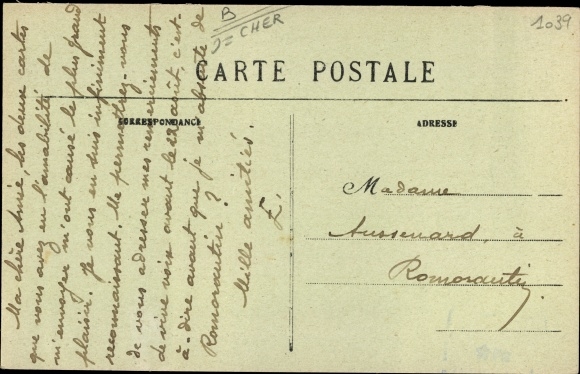 B
D= CHER
1039
CARTE POSTALE
CORRESPONDANCE
ADRESSE
Ma chère Amie, les deux cartes
que vous avez eu l'amabilité de
m'envoyer m'ont causé le plus grand
plaisir. Je vous en suis infiniment
reconnaissant. Me permettrez-vous
de vous adresser mes remerciements
de vive voix avant le 22 août, c'est-
à-dire avant que je m'absente de
Romorantin ?
Mille amitiés.
Madame
Aussenard, à
Romorantin